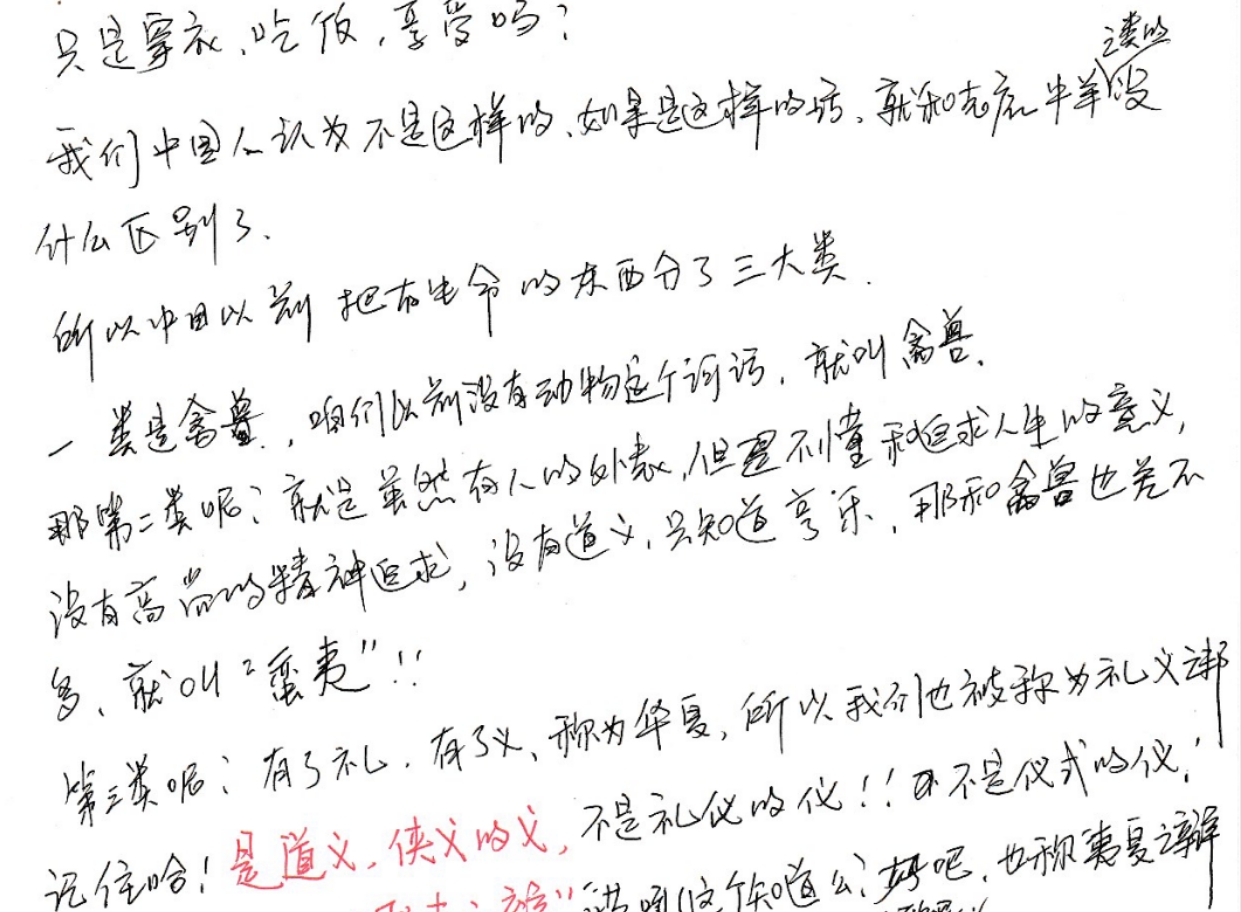 只是穿衣、吃饭，享受吗？
之类的
我们中国人认为不是这样的、如果是这样的话、就和克鹿牛羊没
什么区别了、
所以中国以前把有生命的东西分了三大类.
一类是禽兽，咱们以前没有动物这个词语，就叫禽兽、
那第二类呢？就是虽然有人的外表，但是不懂和追求人生的意义，
没有高尚的精神追求，没有道义，只知道享乐，那和禽兽也差不
多、就叫“蛮夷”!!
第三类呢？有了礼，有了义、称为华夏，所以我们也被称为礼义之邦
记住哈！是道义、侠义的义，不是礼仪的仪!! 不是仪式的仪！
这个知道么？好吧，也称夷夏之辩